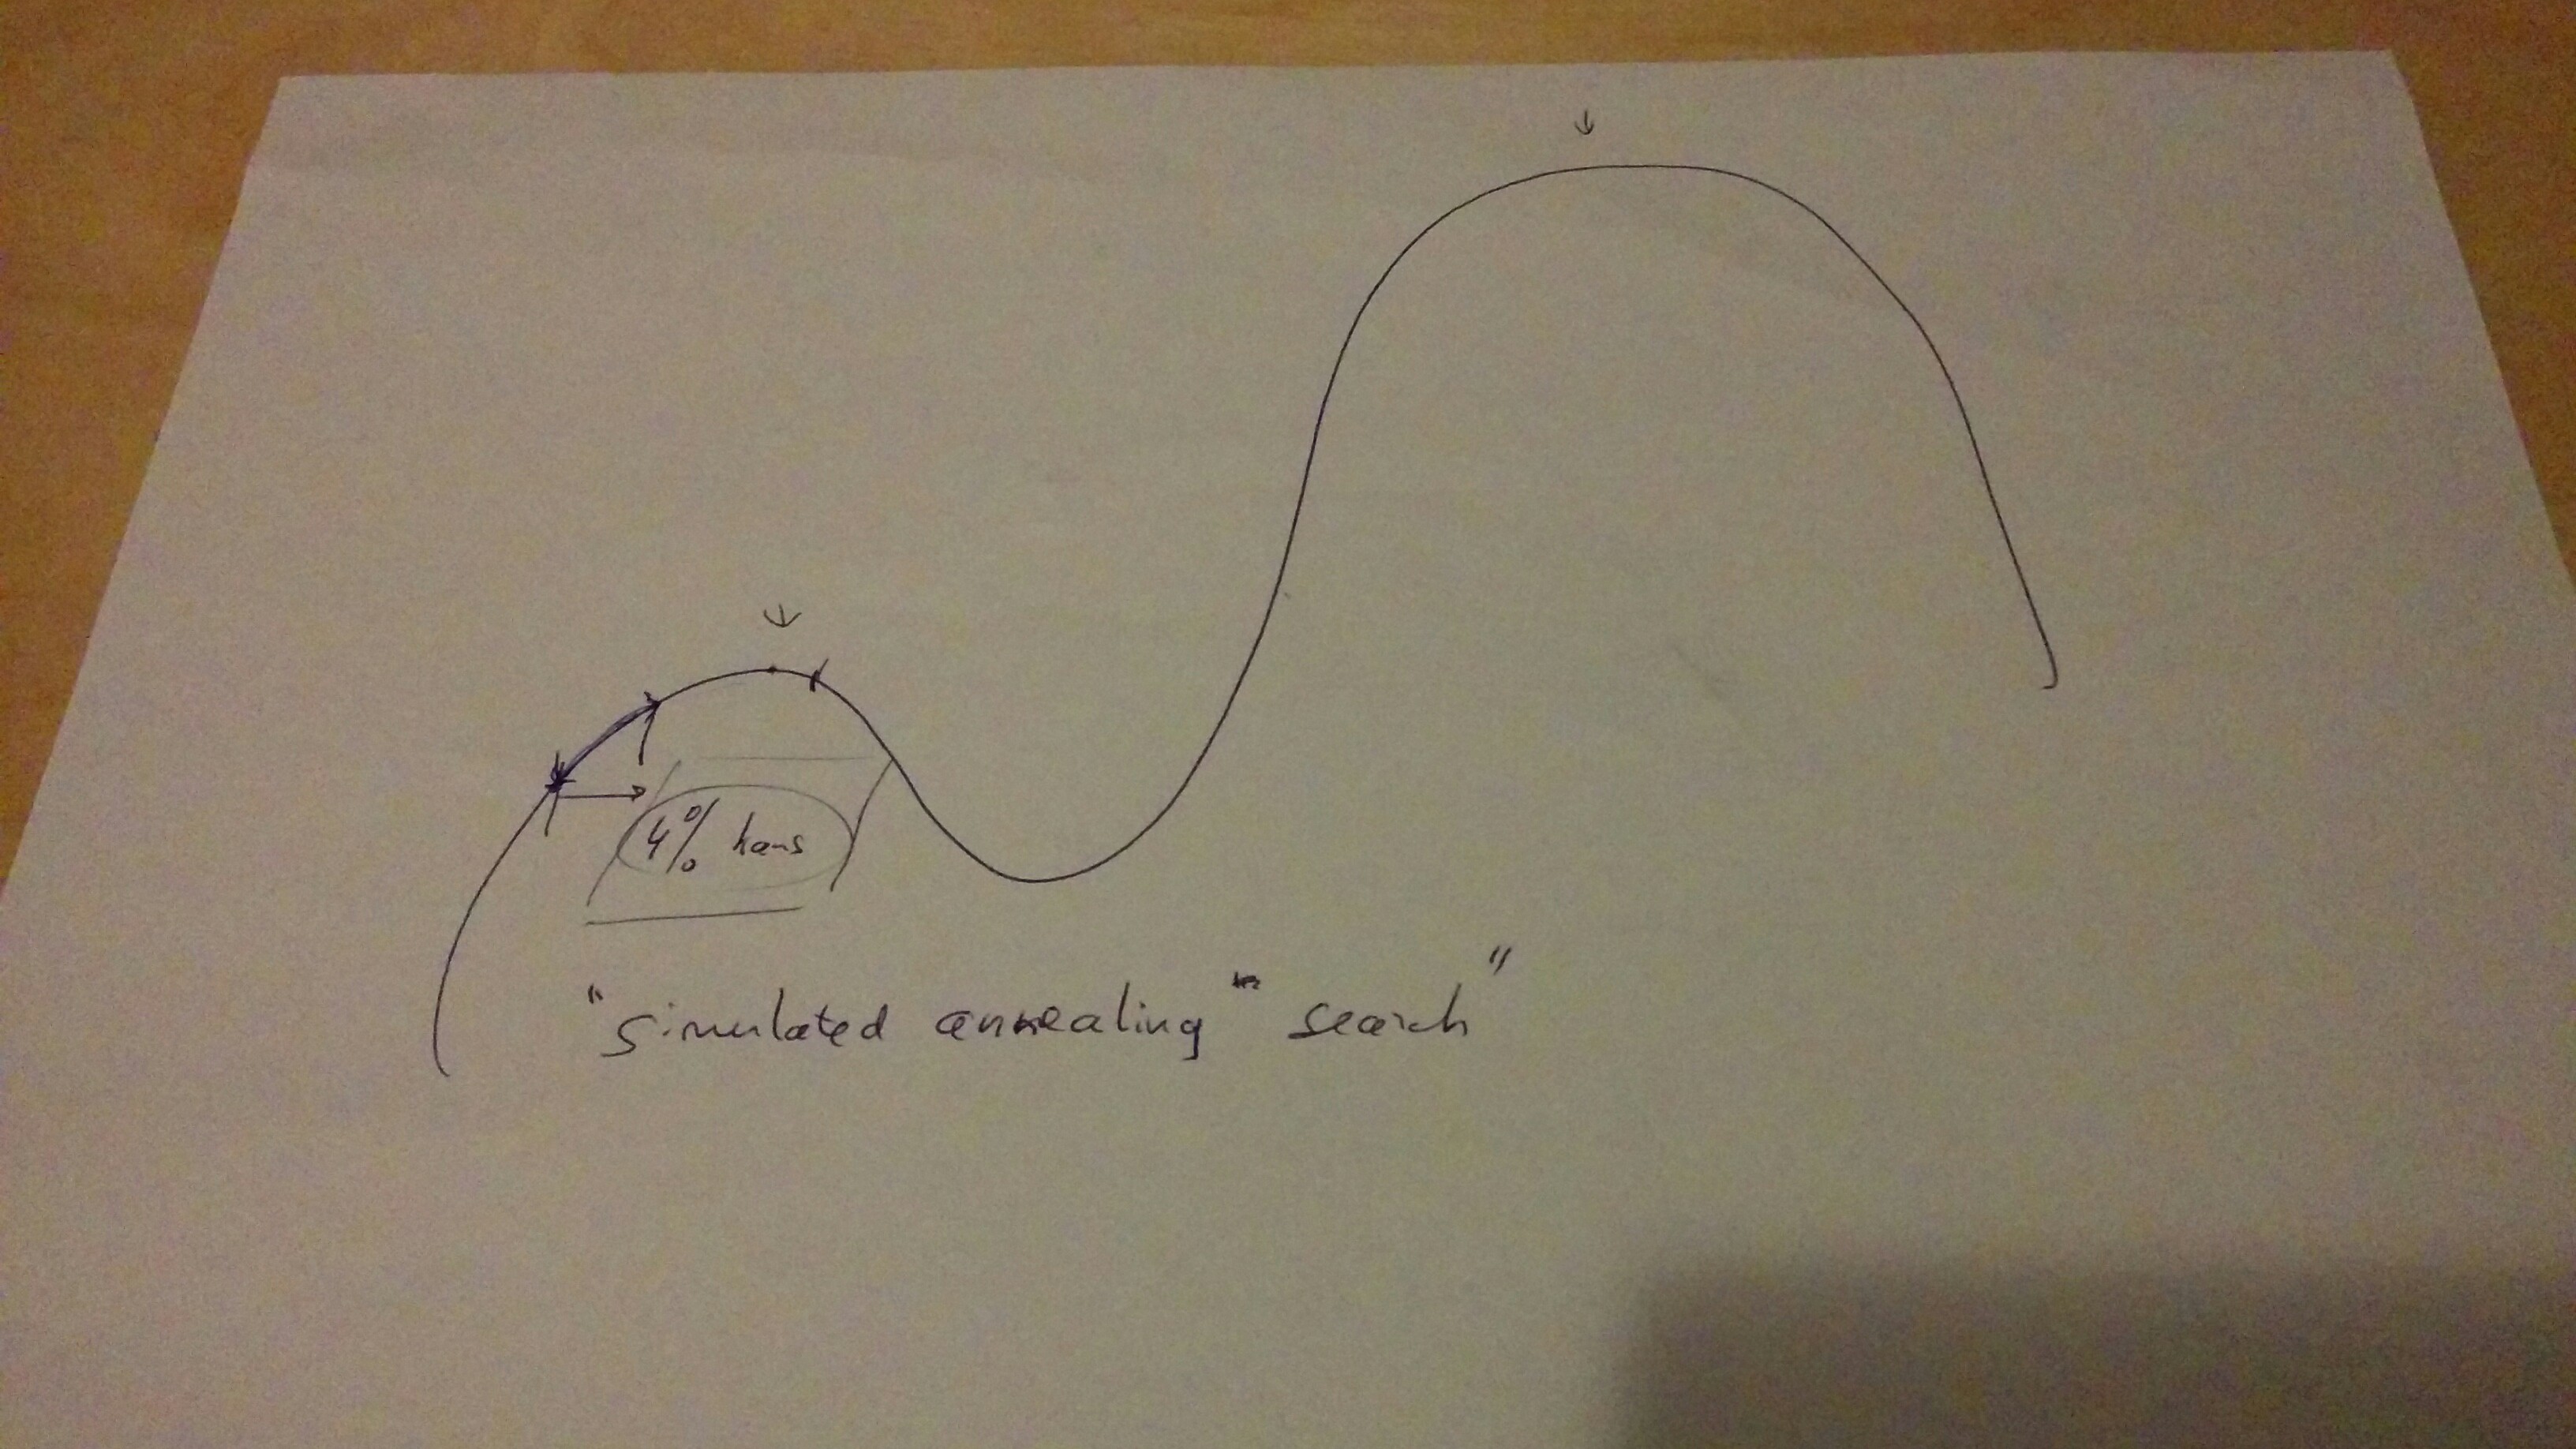 4% kans
"simulated annealing" search"